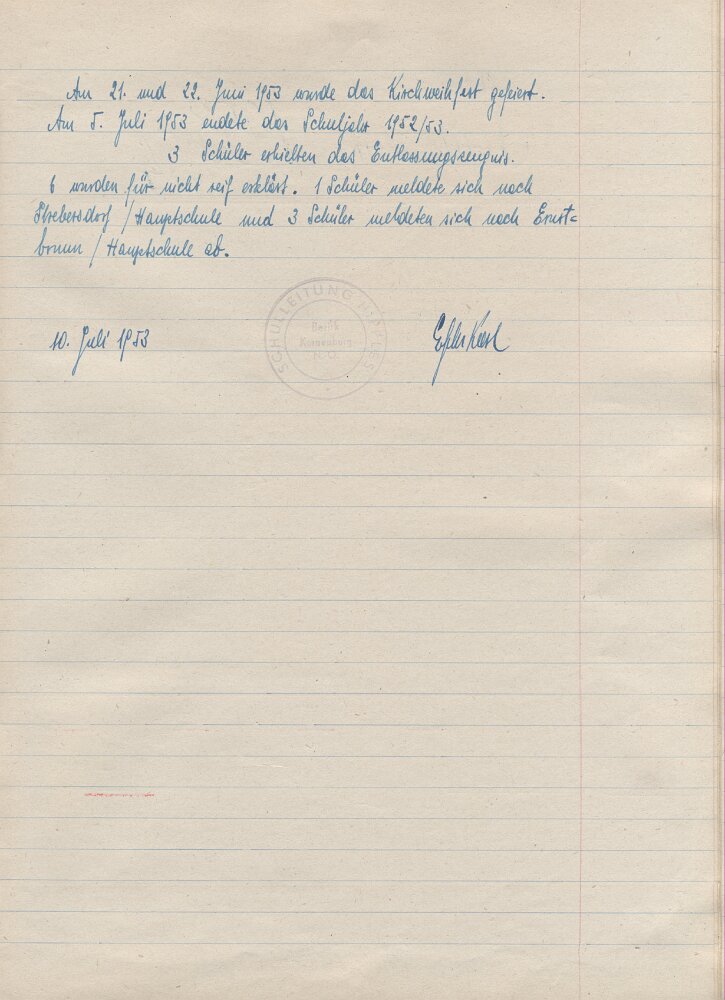 Am 21. und 22. Juni 1953 wurde das Kirchweihfest gefeiert.
Am 5. Juli 1953 endete das Schuljahr 1952/53.
3 Schüler erhielten das Entlassungszeugnis.
6 wurden für nicht reif erklärt. 1 Schüler meldete sich nach
Strebersdorf / Hauptschule und 3 Schüler meldeten sich nach Ernst=
brunn / Hauptschule ab.
SCHULLEITUNG
Bezirk
Korneuburg
N.Ö.
10. Juli 1953